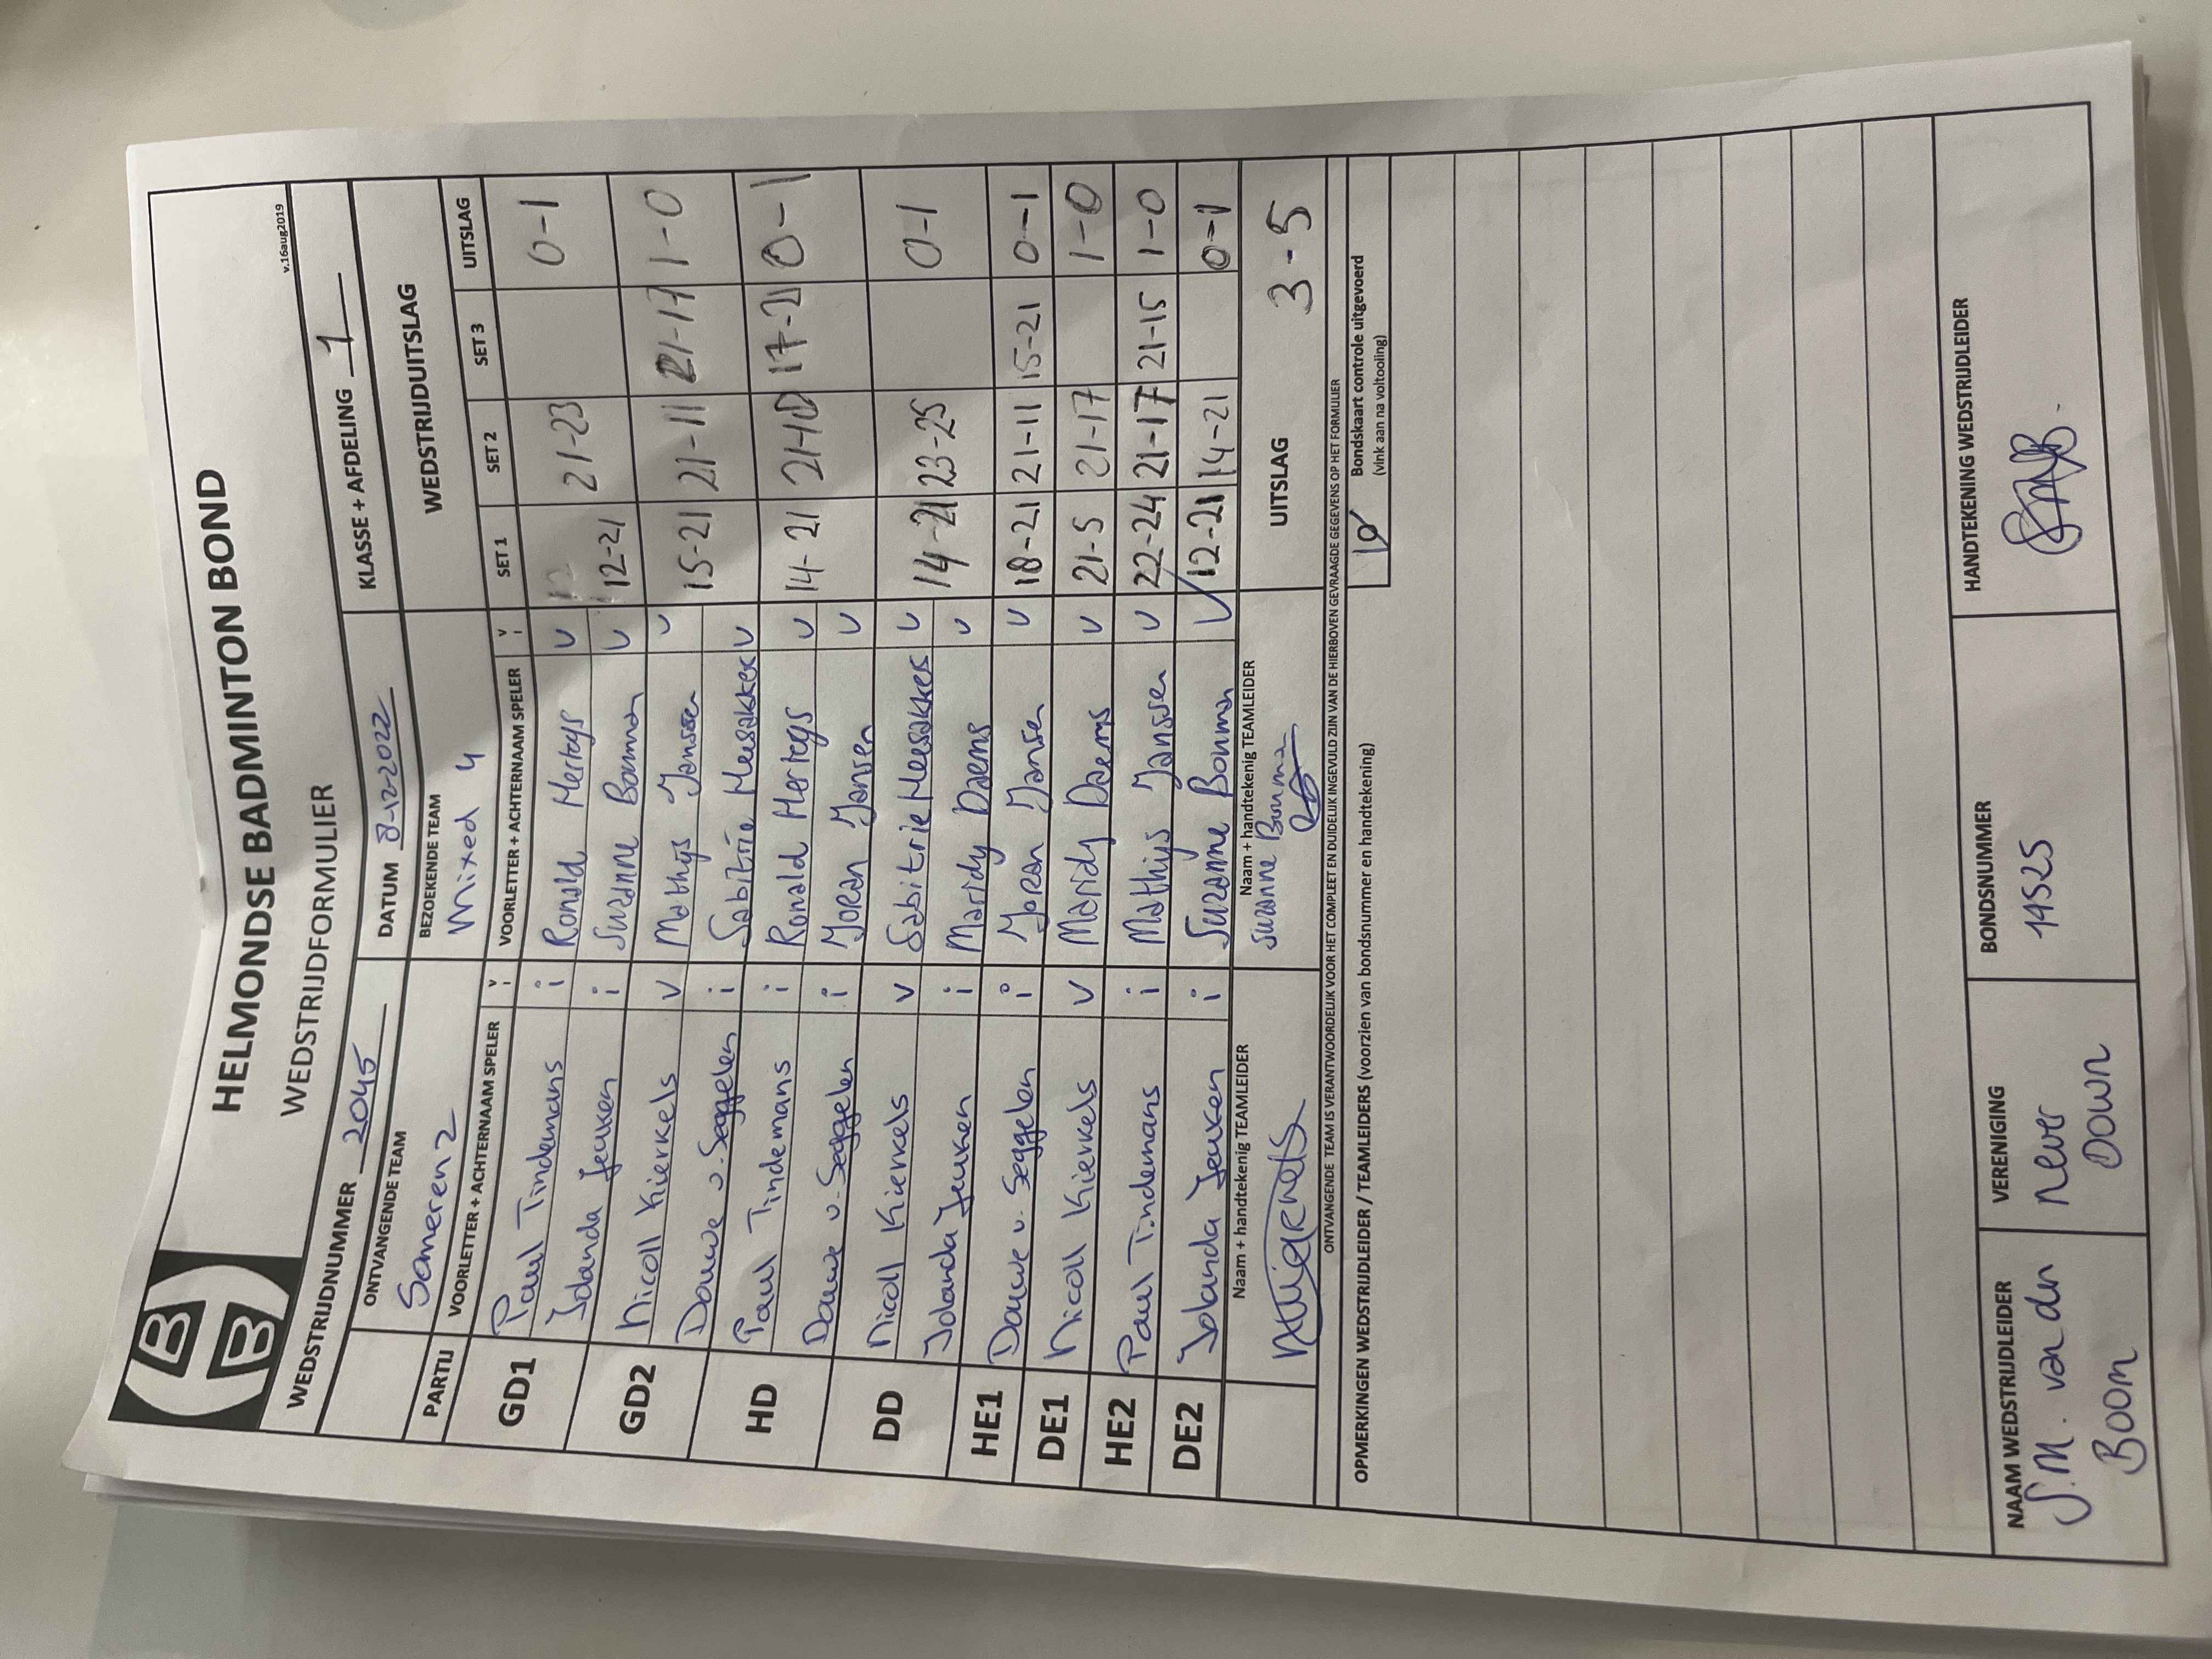 HELMONDSE BADMINTON BOND
v.16aug2019
WEDSTRIJDFORMULIER
WEDSTRIJDNUMMER 2045 DATUM 8-12-2022 KLASSE + AFDELING 1
ONTVANGENDE TEAM BEZOEKENDE TEAM WEDSTRIJDUITSLAG
Someren 2 Mixed 4
PARTIJ VOORLETTER + ACHTERNAAM SPELER V i VOORLETTER + ACHTERNAAM SPELER V i SET 1 SET 2 SET 3 UITSLAG
GD1 Paul Tindemans i Ronald Hertogs v 12 21-23 0-1
Jolanda Jeuken i Suzanne Bouman v 12-21
GD2 Nicoll Kierkels v Mathijs Jansen v 15-21 21-11 21-17 1-0
Douwe v. Seggelen i Sabitrie Meesakkers v
HD Paul Tindemans i Ronald Hertogs v 14-21 21-10 17-21 0-1
Douwe v. Seggelen i Joran Jansen v
DD Nicoll Kierkels v Sabitrie Meesakkers v 14-21 23-25 0-1
Jolanda Jeuken i Maridy Daems v
HE1 Douwe v. Seggelen i Joran Jansen v 18-21 21-11 15-21 0-1
DE1 Nicoll Kierkels v Maridy Daems v 21-5 21-17 1-0
HE2 Paul Tindemans i Mathijs Jansen v 22-24 21-17 21-15 1-0
DE2 Jolanda Jeuken i Suzanne Bouman v 12-21 14-21 0-1
Naam + handtekenig TEAMLEIDER Naam + handtekenig TEAMLEIDER UITSLAG 3-5
Suzanne Bouman
ONTVANGENDE TEAM IS VERANTWOORDELIJK VOOR HET COMPLEET EN DUIDELIJK INGEVULD ZIJN VAN DE HIERBOVEN GEVRAAGDE GEGEVENS OP HET FORMULIER
OPMERKINGEN WEDSTRIJDLEIDER / TEAMLEIDERS (voorzien van bondsnummer en handtekening)
Bondskaart controle uitgevoerd
(vink aan na voltooling)
NAAM WEDSTRIJDLEIDER VERENIGING BONDSNUMMER HANDTEKENING WEDSTRIJDLEIDER
J.M. van dn never 19525
Boom Down